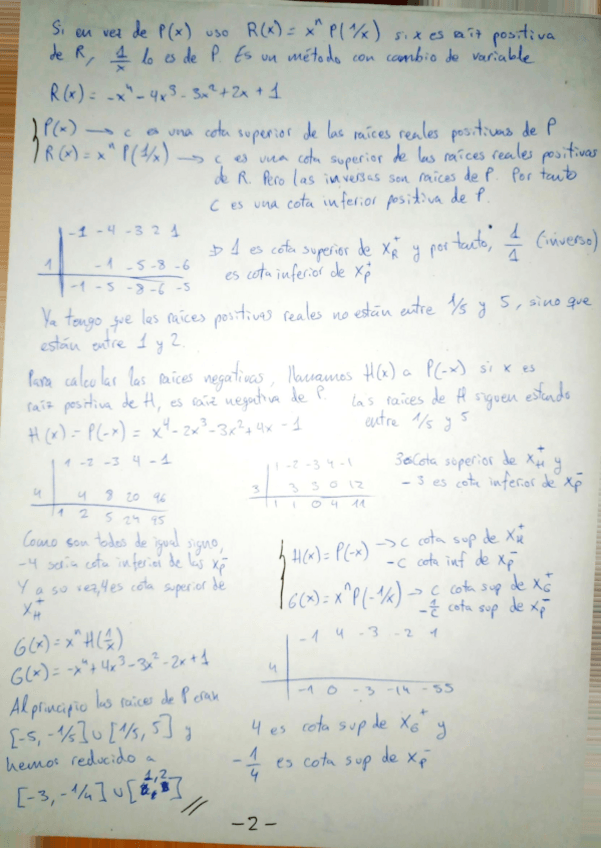 Si en vez de P(x) uso R(x) = xⁿ P(1/x) si x es raíz positiva
de R, 1/x lo es de P. Es un método con cambio de variable
R(x) = -x⁴ - 4x³ - 3x² + 2x + 1
P(x) → c es una cota superior de las raíces reales positivas de P
R(x) = xⁿ P(1/x) → c es una cota superior de las raíces reales positivas
de R. Pero las inversas son raíces de P. Por tanto
c es una cota inferior positiva de P.
-1 -4 -3 2 1
1 -1 -5 -8 -6
-1 -5 -8 -6 -5
⇒ 1 es cota superior de X_R⁺ y por tanto, 1/1 (inverso)
es cota inferior de X_P⁺
Ya tengo que las raíces positivas reales no están entre 1/5 y 5, sino que
están entre 1 y 2.
Para calcular las raíces negativas, llamamos H(x) a P(-x) si x es
raíz positiva de H, es raíz negativa de P. Las raíces de H siguen estando
entre 1/5 y 5
H(x) = P(-x) = x⁴ - 2x³ - 3x² + 4x - 1
1 -2 -3 4 -1
4 4 8 20 96
1 2 5 24 95
1 -2 -3 4 -1
3 3 3 0 12
1 1 0 4 11
3 cota superior de X_H⁺ y
-3 es cota inferior de X_P⁻
Como son todos de igual signo,
-4 sería cota inferior de las X_P⁻
Y a su vez, 4 es cota superior de
X_H⁺
H(x) = P(-x) → c cota sup de X_H⁺
-c cota inf de X_P⁻
G(x) = xⁿ P(-1/x) → c cota sup de X_G⁺
-1/c cota sup de X_P⁻
G(x) = xⁿ H(1/x)
G(x) = -x⁴ + 4x³ - 3x² - 2x + 1
-1 4 -3 -2 1
4
-1 0 -3 -14 -55
Al principio las raíces de P eran
[-5, -1/5] ∪ [1/5, 5] y
hemos reducido a
[-3, -1/4] ∪ [1, 2]
4 es cota sup de X_G⁺ y
-1/4 es cota sup de X_P⁻
-2-